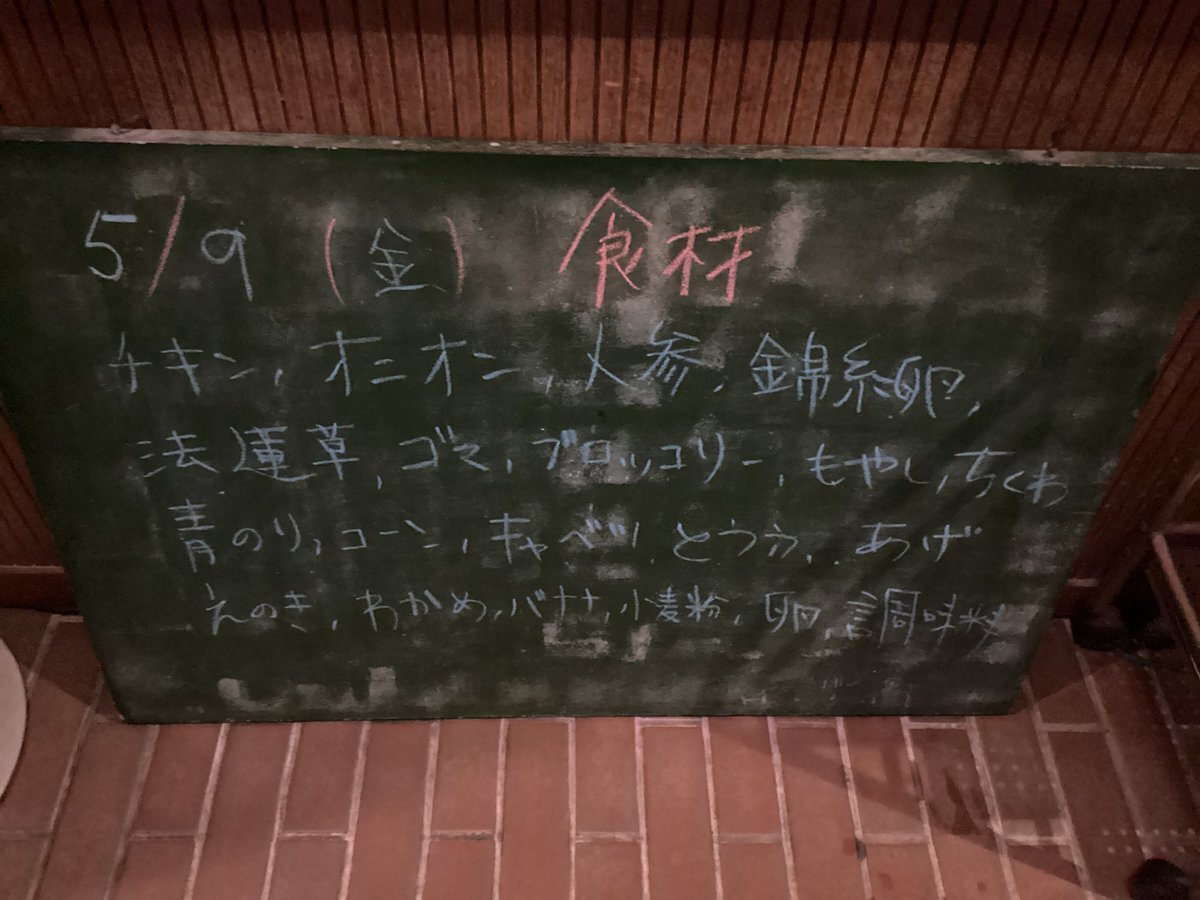 5/9 (金) 食材
チキン, オニオン, 人参, 錦糸卵,
法蓮草, ゴマ, ブロッコリー, もやし, ちくわ
青のり, コーン, キャベツ, とうふ, あげ
えのき, わかめ, バナナ, 小麦粉, 卵, 調味料